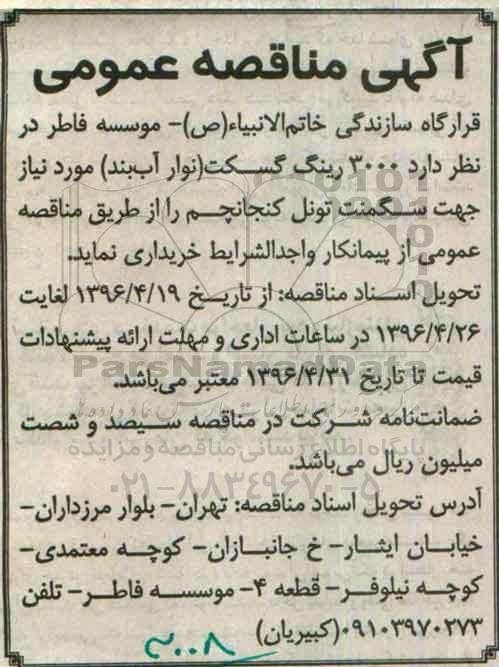 آگهی مناقصه عمومی
قرارگاه سازندگی خاتم‌الانبیاء(ص)- موسسه فاطر در
نظر دارد ۳۰۰۰ رینگ گسکت(نوار آب‌بند) مورد نیاز
جهت سگمنت تونل کنجانچم را از طریق مناقصه
عمومی از پیمانکار واجدالشرایط خریداری نماید.
تحویل اسناد مناقصه: از تاریخ ۱۳۹۶/۴/۱۹ لغایت
۱۳۹۶/۴/۲۶ در ساعات اداری و مهلت ارائه پیشنهادات
قیمت تا تاریخ ۱۳۹۶/۴/۳۱ معتبر می‌باشد.
ParsNamadData
ضمانت‌نامه شرکت در مناقصه سیصد و شصت
پایگاه اطلاع رسانی مناقصه و مزایده
میلیون ریال می‌باشد.
۰۲۱-۸۸۳۴۹۶۷۰-۵
آدرس تحویل اسناد مناقصه: تهران- بلوار مرزداران-
خیابان ایثار- خ جانبازان- کوچه معتمدی-
کوچه نیلوفر- قطعه ۴- موسسه فاطر- تلفن
۰۹۱۰۳۹۷۰۲۷۳(کبیریان)
۳۰۰۸